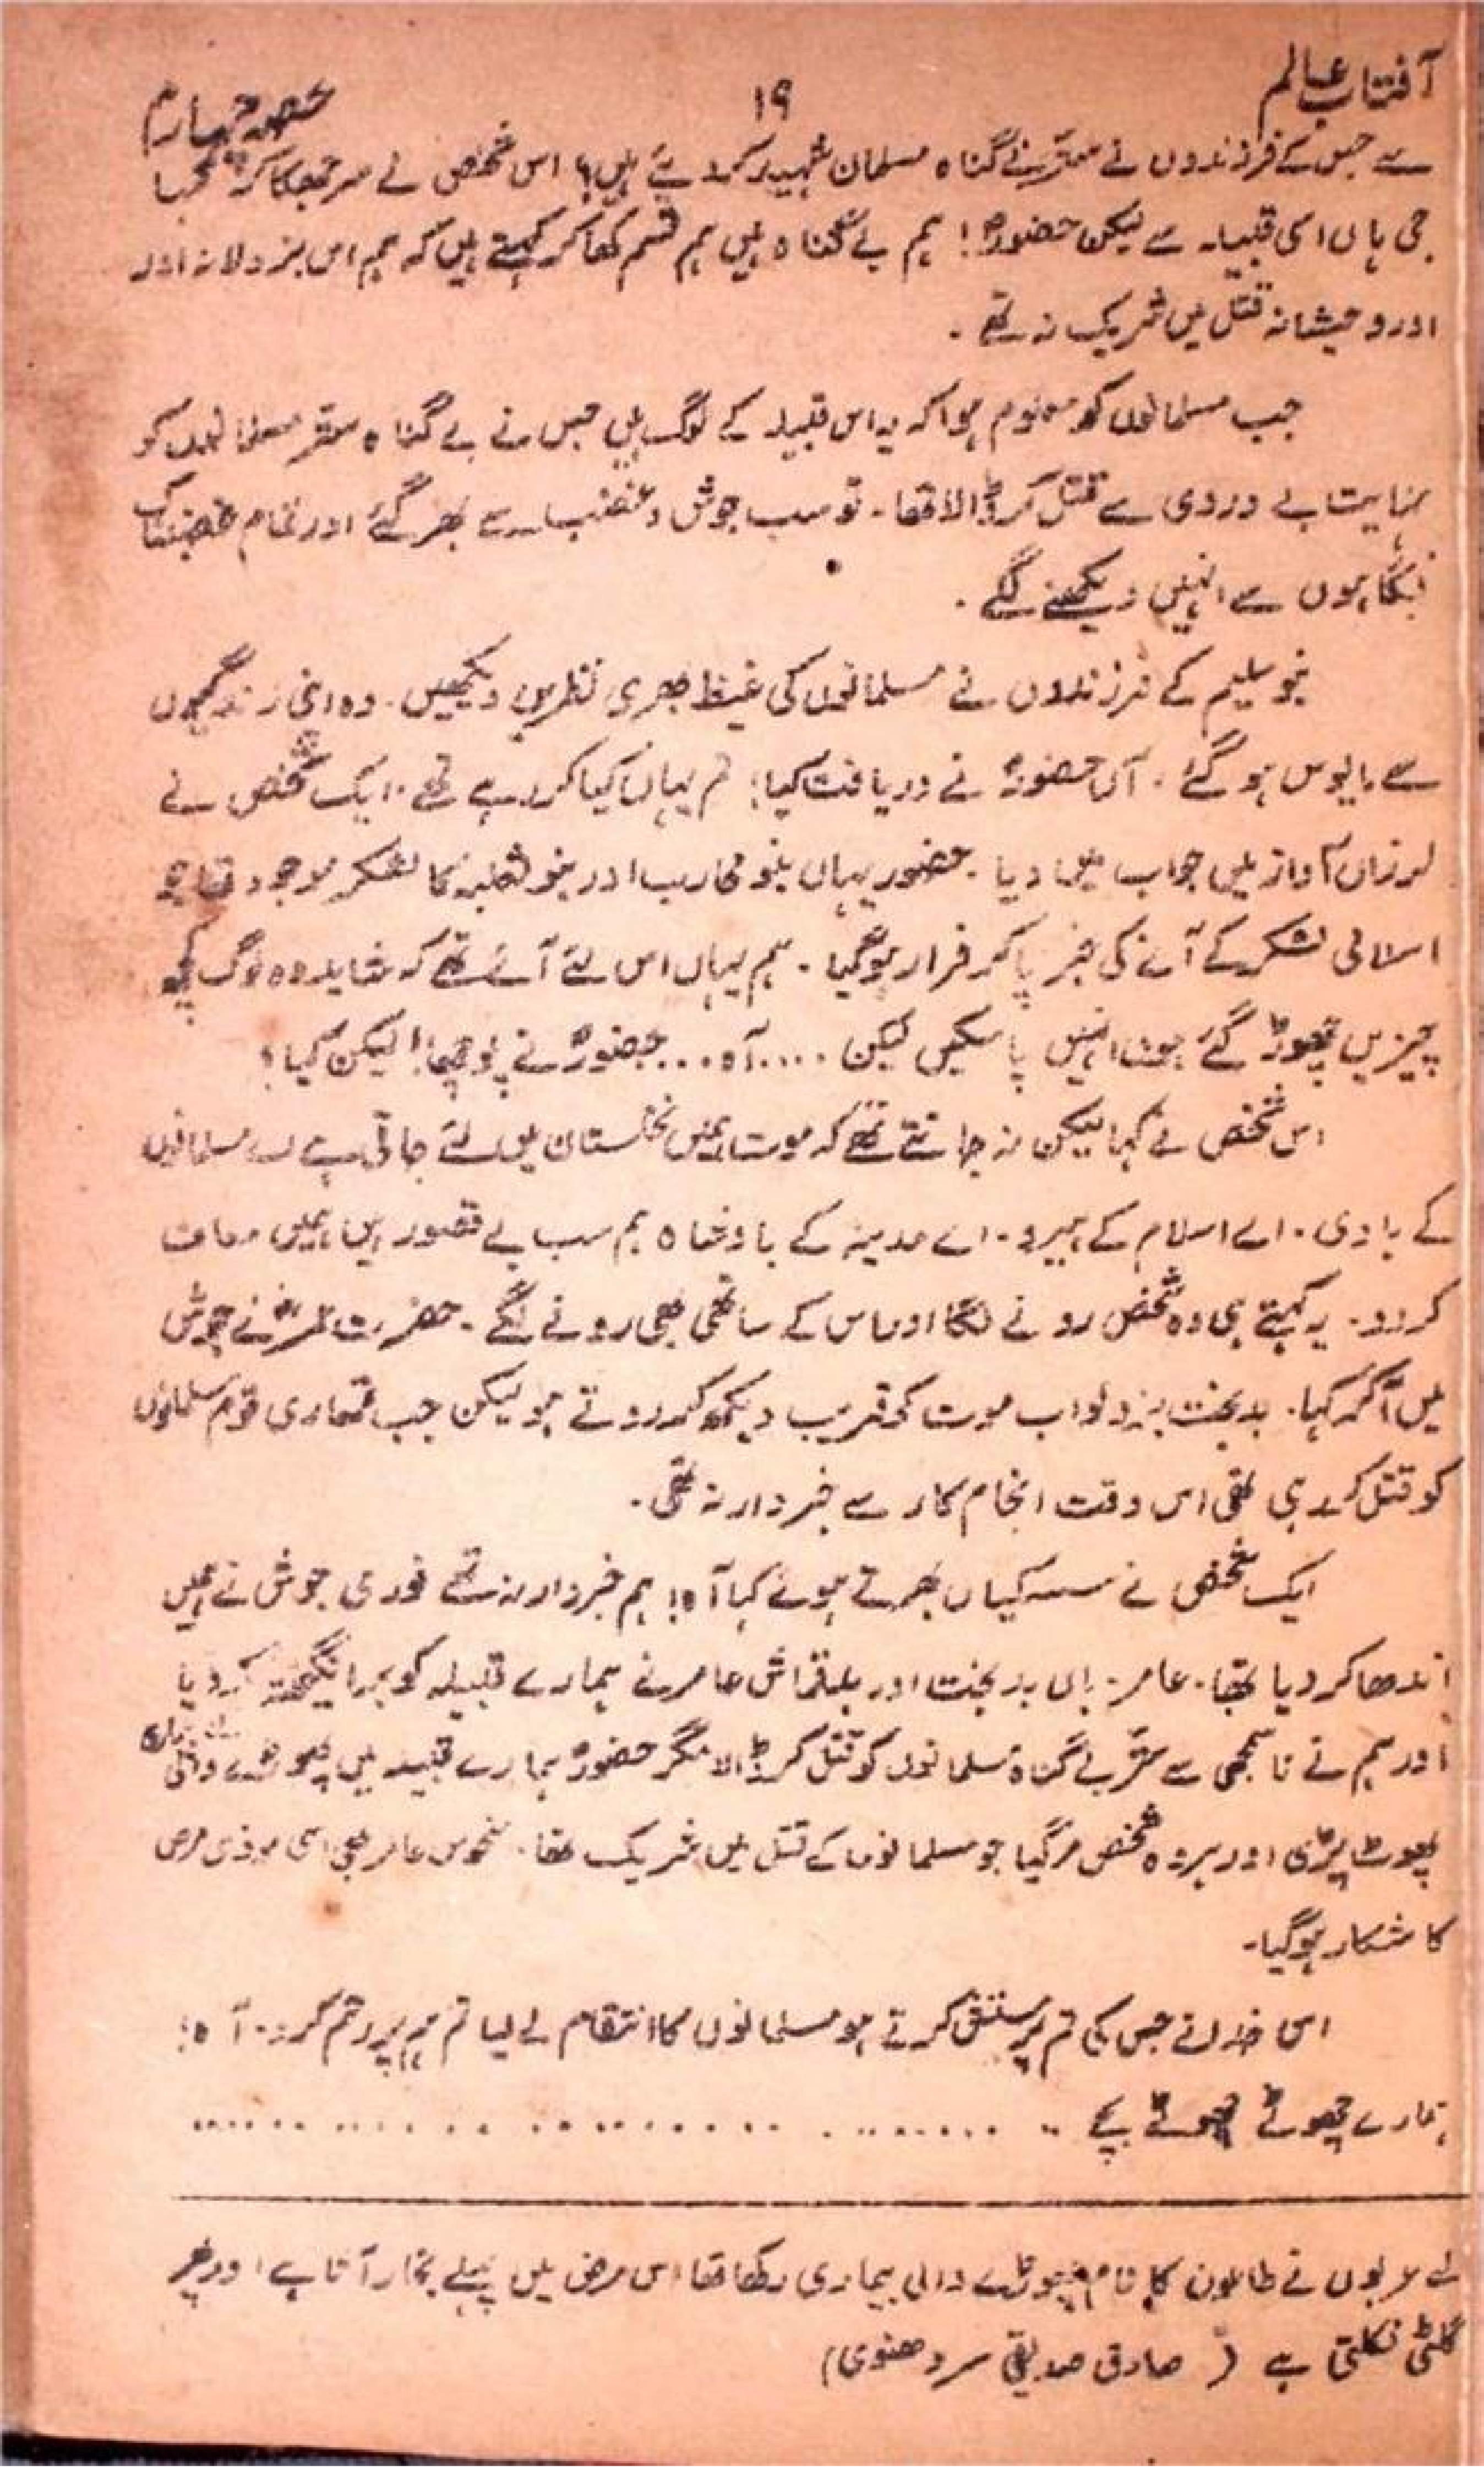 آفتاب عالم
۱۹
حصہ چہارم
سے جس کے فرزندوں نے ستر بے گناہ مسلمان شہید کر دیئے ہیں؟ اس شخص نے سر جھکا کر کہا
جی ہاں اسی قبیلہ سے لیکن حضورؐ! ہم بے گناہ ہیں ہم قسم کھا کر کہتے ہیں کہ ہم اس بزدلانہ اور
اور وحیشانہ قتل میں شریک نہ تھے ۔
جب مسلمانوں کو معلوم ہوا کہ یہ اس قبیلہ کے لوگ ہیں جس نے بے گناہ ستر مسلمانوں کو
نہایت بے دردی سے قتل کر ڈالا تھا ۔ تو سب جوش و غضب سے بھر گئے اور تمام غضبناک
نگاہوں سے انہیں دیکھنے لگے ۔
بنو سلیم کے فرزندوں نے مسلمانوں کی غیظ بھری نظریں دیکھیں ۔ وہ اپنی زندگیوں
سے مایوس ہو گئے ۔ آں حضورؐ نے دریافت کیا؛ تم یہاں کیا کر رہے تھے ۔ ایک شخص نے
لرزاں آواز میں جواب دیا ۔ حضور یہاں بنو محارب اور بنو ثعلبہ کا لشکر موجود تھا جو
اسلامی لشکر کے آنے کی خبر پا کر فرار ہو گیا ۔ ہم یہاں اس لئے آئے تھے کہ شاید وہ لوگ کچھ
چیزیں چھوڑ گئے ہوں انہیں پا سکیں لیکن ..... آہ .... حضورؐ نے پوچھا! لیکن کیا؟
اس شخص نے کہا لیکن نہ جانتے تھے کہ موت ہمیں نخلستان میں لئے جاتی ہے اے مسلمانوں
کے ہادی ۔ اے اسلام کے ہیرو ۔ اے مدینہ کے بادشاہ ہم سب بے قصور ہیں ہمیں معاف
کر دو ۔ یہ کہتے ہی وہ شخص رونے لگا اور اس کے ساتھی بھی رونے لگے ۔ حضرت عمرؓ نے جوش
میں آ کر کہا ۔ بدبخت بزدلو اب موت کو قریب دیکھ کر روتے ہو لیکن جب تمھاری قوم مسلمانوں
کو قتل کر رہی تھی اس وقت انجام کار سے خبردار نہ تھی ۔
ایک شخص نے سسکیاں بھرتے ہوئے کہا آہ! ہم خبردار نہ تھے فوری جوش نے ہمیں
اندھا کر دیا تھا ۔ عامر ۔ ہاں بدبخت اور بدقماش عامر نے ہمارے قبیلہ کو برانگیختہ کر دیا
اور ہم نے ناسمجھی سے ستر بے گناہ مسلمانوں کو قتل کر ڈالا مگر حضورؐ ہمارے قبیلہ میں پھوڑے والی بیماری
پھوٹ پڑی اور ہر وہ شخص مر گیا جو مسلمانوں کے قتل میں شریک تھا ۔ منحوس عامر بھی اسی موذی مرض
کا شکار ہو گیا ۔
اس خدا نے جس کی تم پرستش کرتے ہو مسلمانوں کا انتقام لے لیا تم ہم پر رحم کرو ۔ آہ!
ہمارے چھوٹے چھوٹے بچے ........................
لے عربوں نے طاعون کا نام پھوڑے والی بیماری رکھا تھا اس مرض میں پہلے بخار آتا ہے اور پھر
گلٹی نکلتی ہے ( صادق صدیقی سردھنوی)